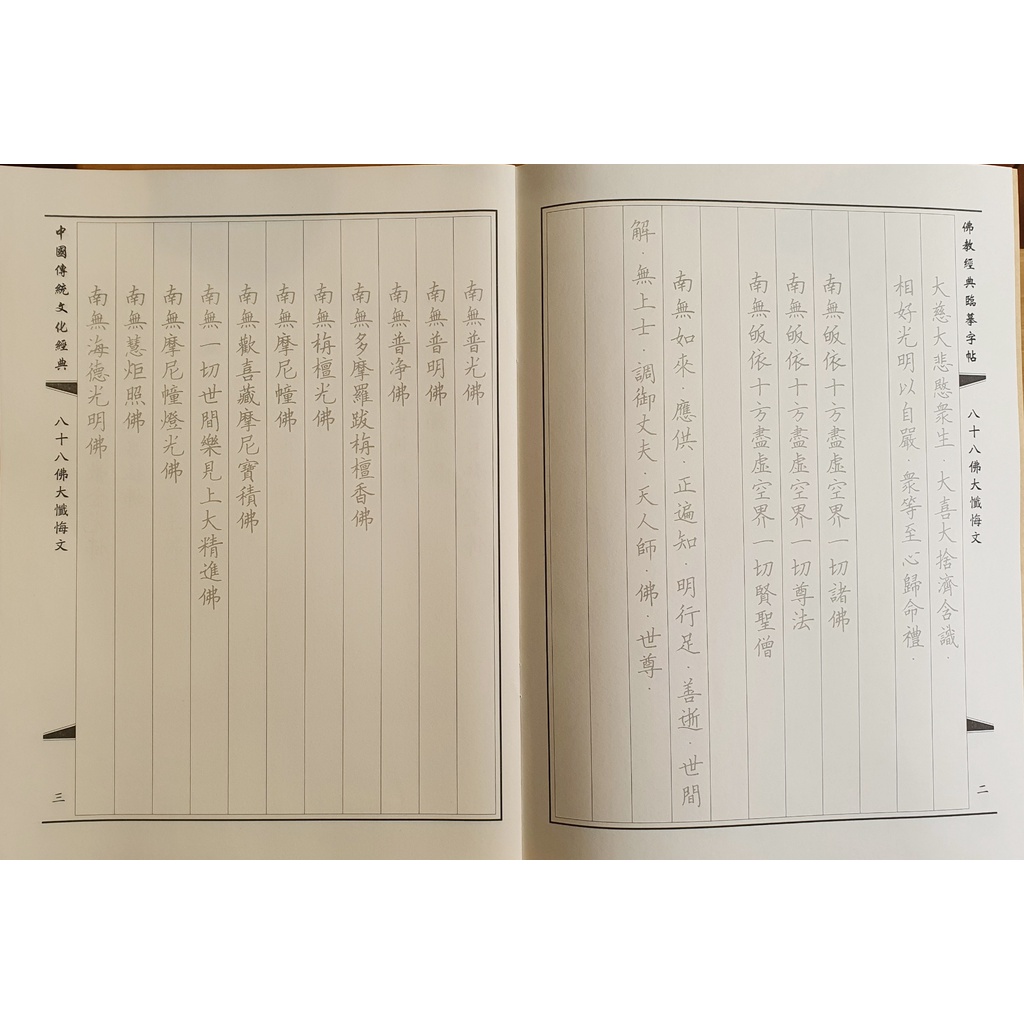 佛教經典臨摹字帖
八十八佛大懺悔文
二
大慈大悲愍衆生．大喜大捨濟含識．
相好光明以自嚴．衆等至心歸命禮．
南無皈依十方盡虛空界一切諸佛
南無皈依十方盡虛空界一切尊法
南無皈依十方盡虛空界一切賢聖僧
南無如來．應供．正遍知．明行足．善逝．世間
解．無上士．調御丈夫．天人師．佛．世尊．
南無普光佛
南無普明佛
南無普净佛
南無多摩羅跋栴檀香佛
南無栴檀光佛
南無摩尼幢佛
南無歡喜藏摩尼寶積佛
南無一切世間樂見上大精進佛
南無摩尼幢燈光佛
南無慧炬照佛
南無海德光明佛
中國傳統文化經典
八十八佛大懺悔文
三